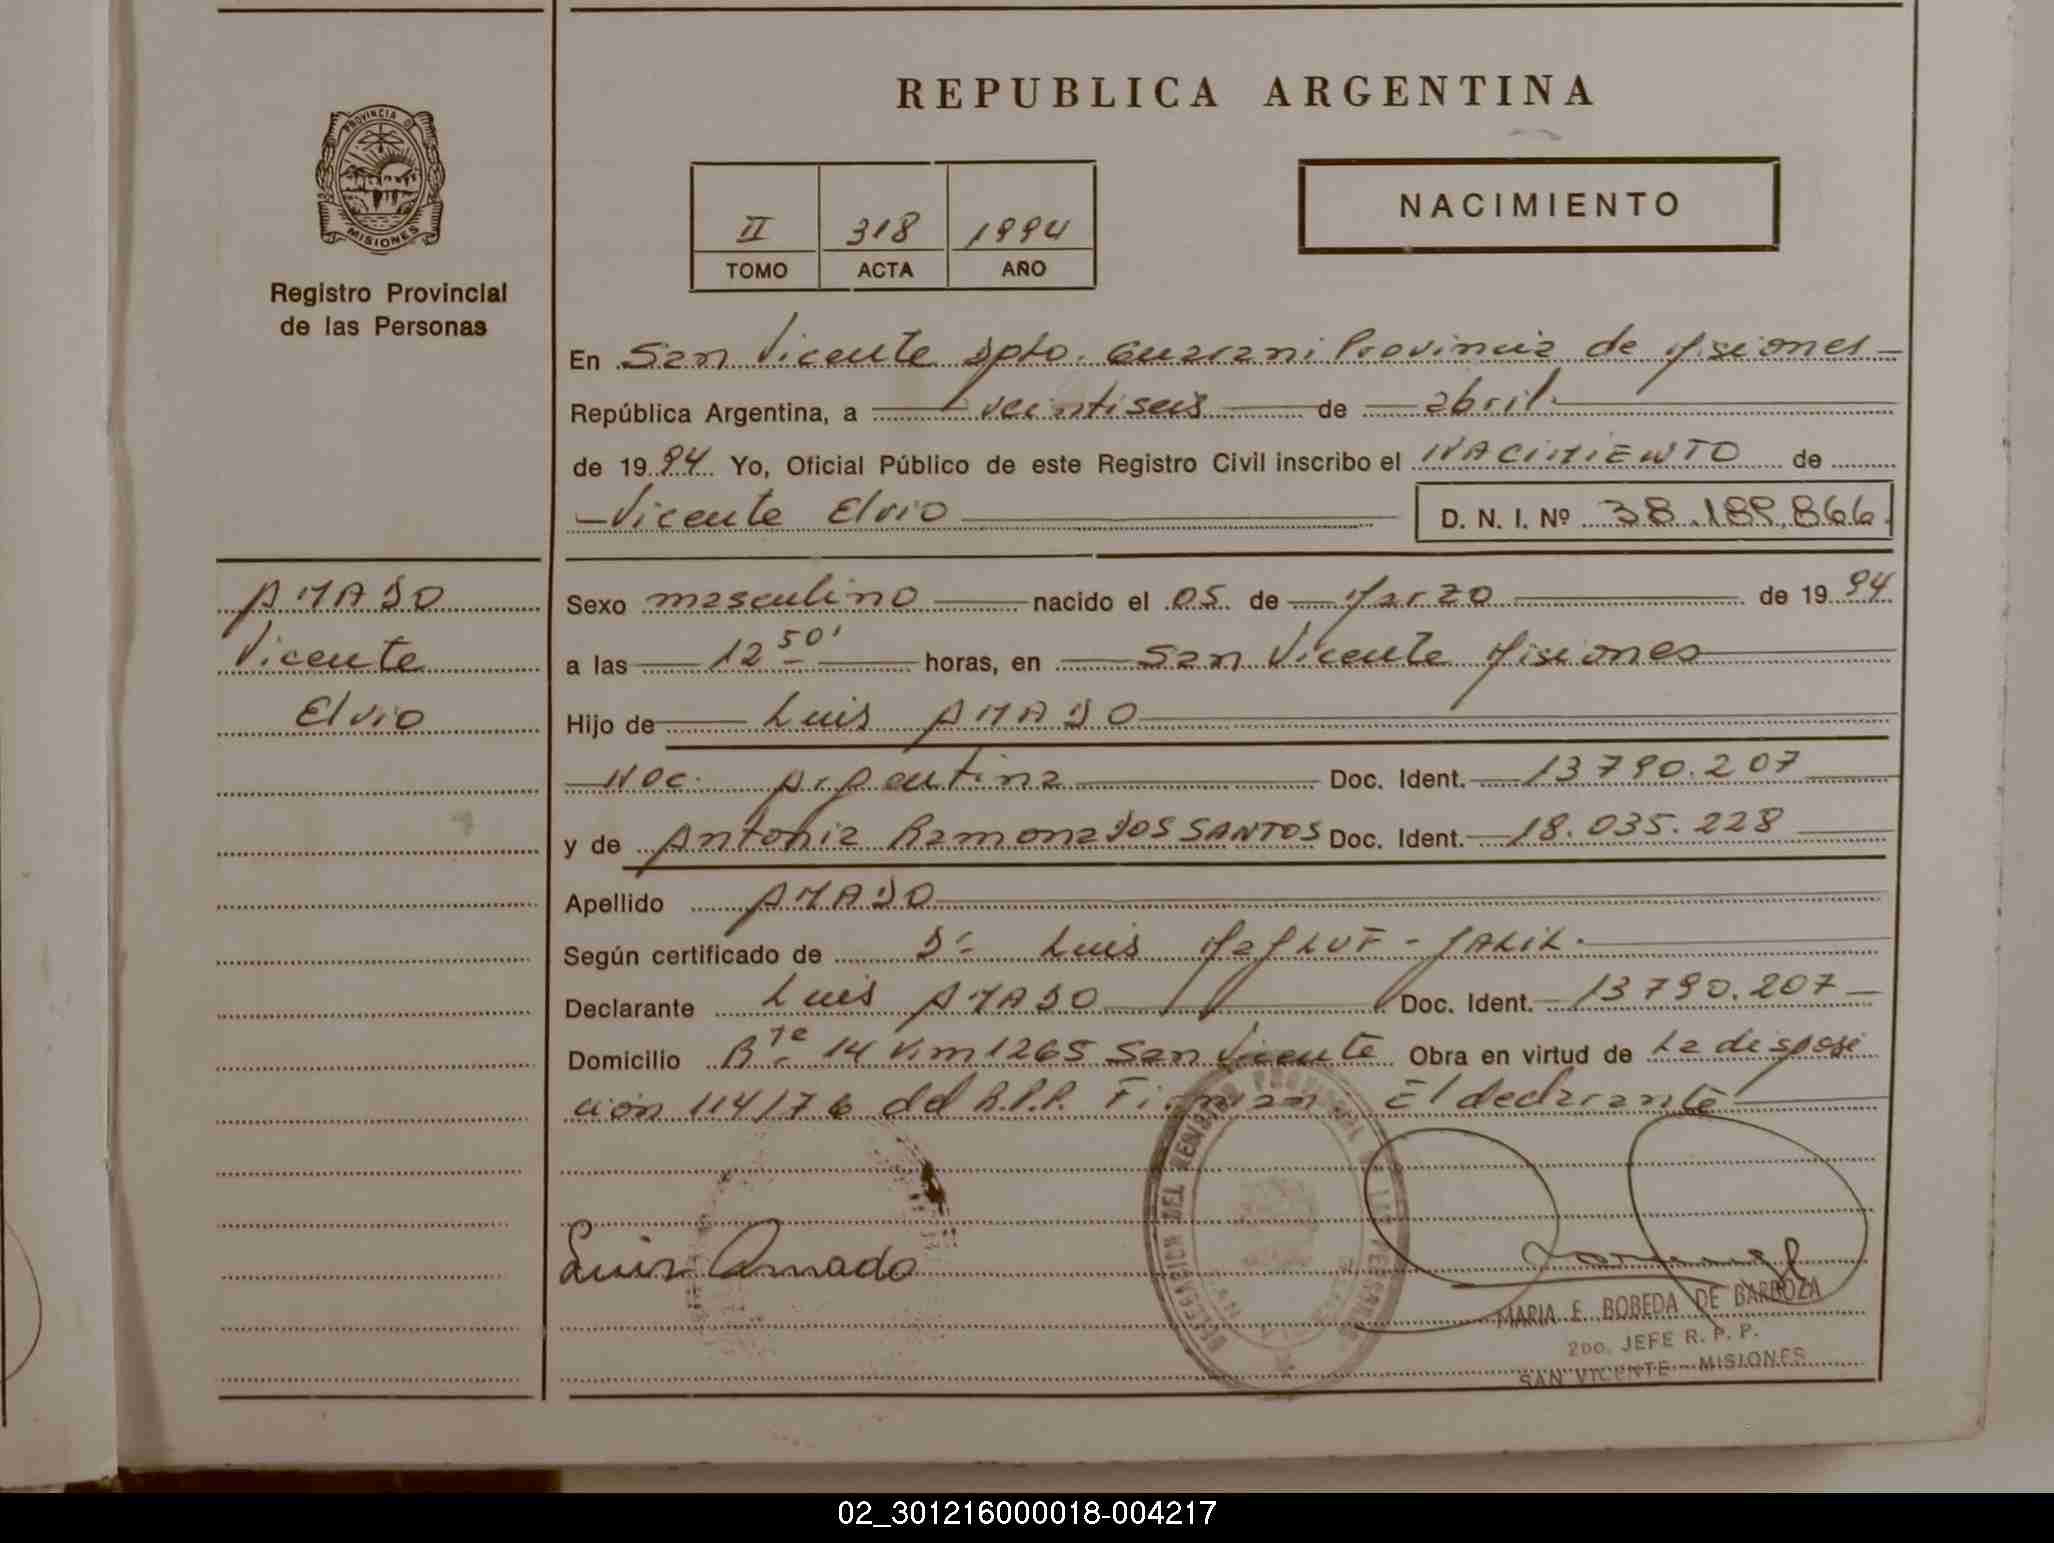 REPUBLICA ARGENTINA
PROVINCIA DE
MISIONES
Registro Provincial
de las Personas
II 318 1994
TOMO ACTA AÑO
NACIMIENTO
En San Vicente Dpto. Guarani Provincia de Misiones
República Argentina, a veintiseis de abril
de 1994 Yo, Oficial Público de este Registro Civil inscribo el NACIMIENTO de
Vicente Elvio D. N. I. Nº 38.189.866.
AMADO
Vicente
Elvio
Sexo masculino nacido el 05 de Marzo de 1994
a las 12 50' horas, en San Vicente Misiones
Hijo de Luis AMADO
Nac. Argentina Doc. Ident. 13790.207
y de Antonia Ramona DOS SANTOS Doc. Ident. 18.035.228
Apellido AMADO
Según certificado de Dr. Luis
Declarante Luis AMADO Doc. Ident. 13790.207
Domicilio Rte 14 Km 1265 San Vicente Obra en virtud de La disposi
ción 114/76 del R.P.P. Firman El declarante
DELEGACION DEL REGISTRO PROVINCIAL DE LAS PERSONAS
Luis Amado
MARIA E. BOBEDA DE BARBOZA
2DO. JEFE R. P. P.
SAN VICENTE - MISIONES
02_301216000018-004217